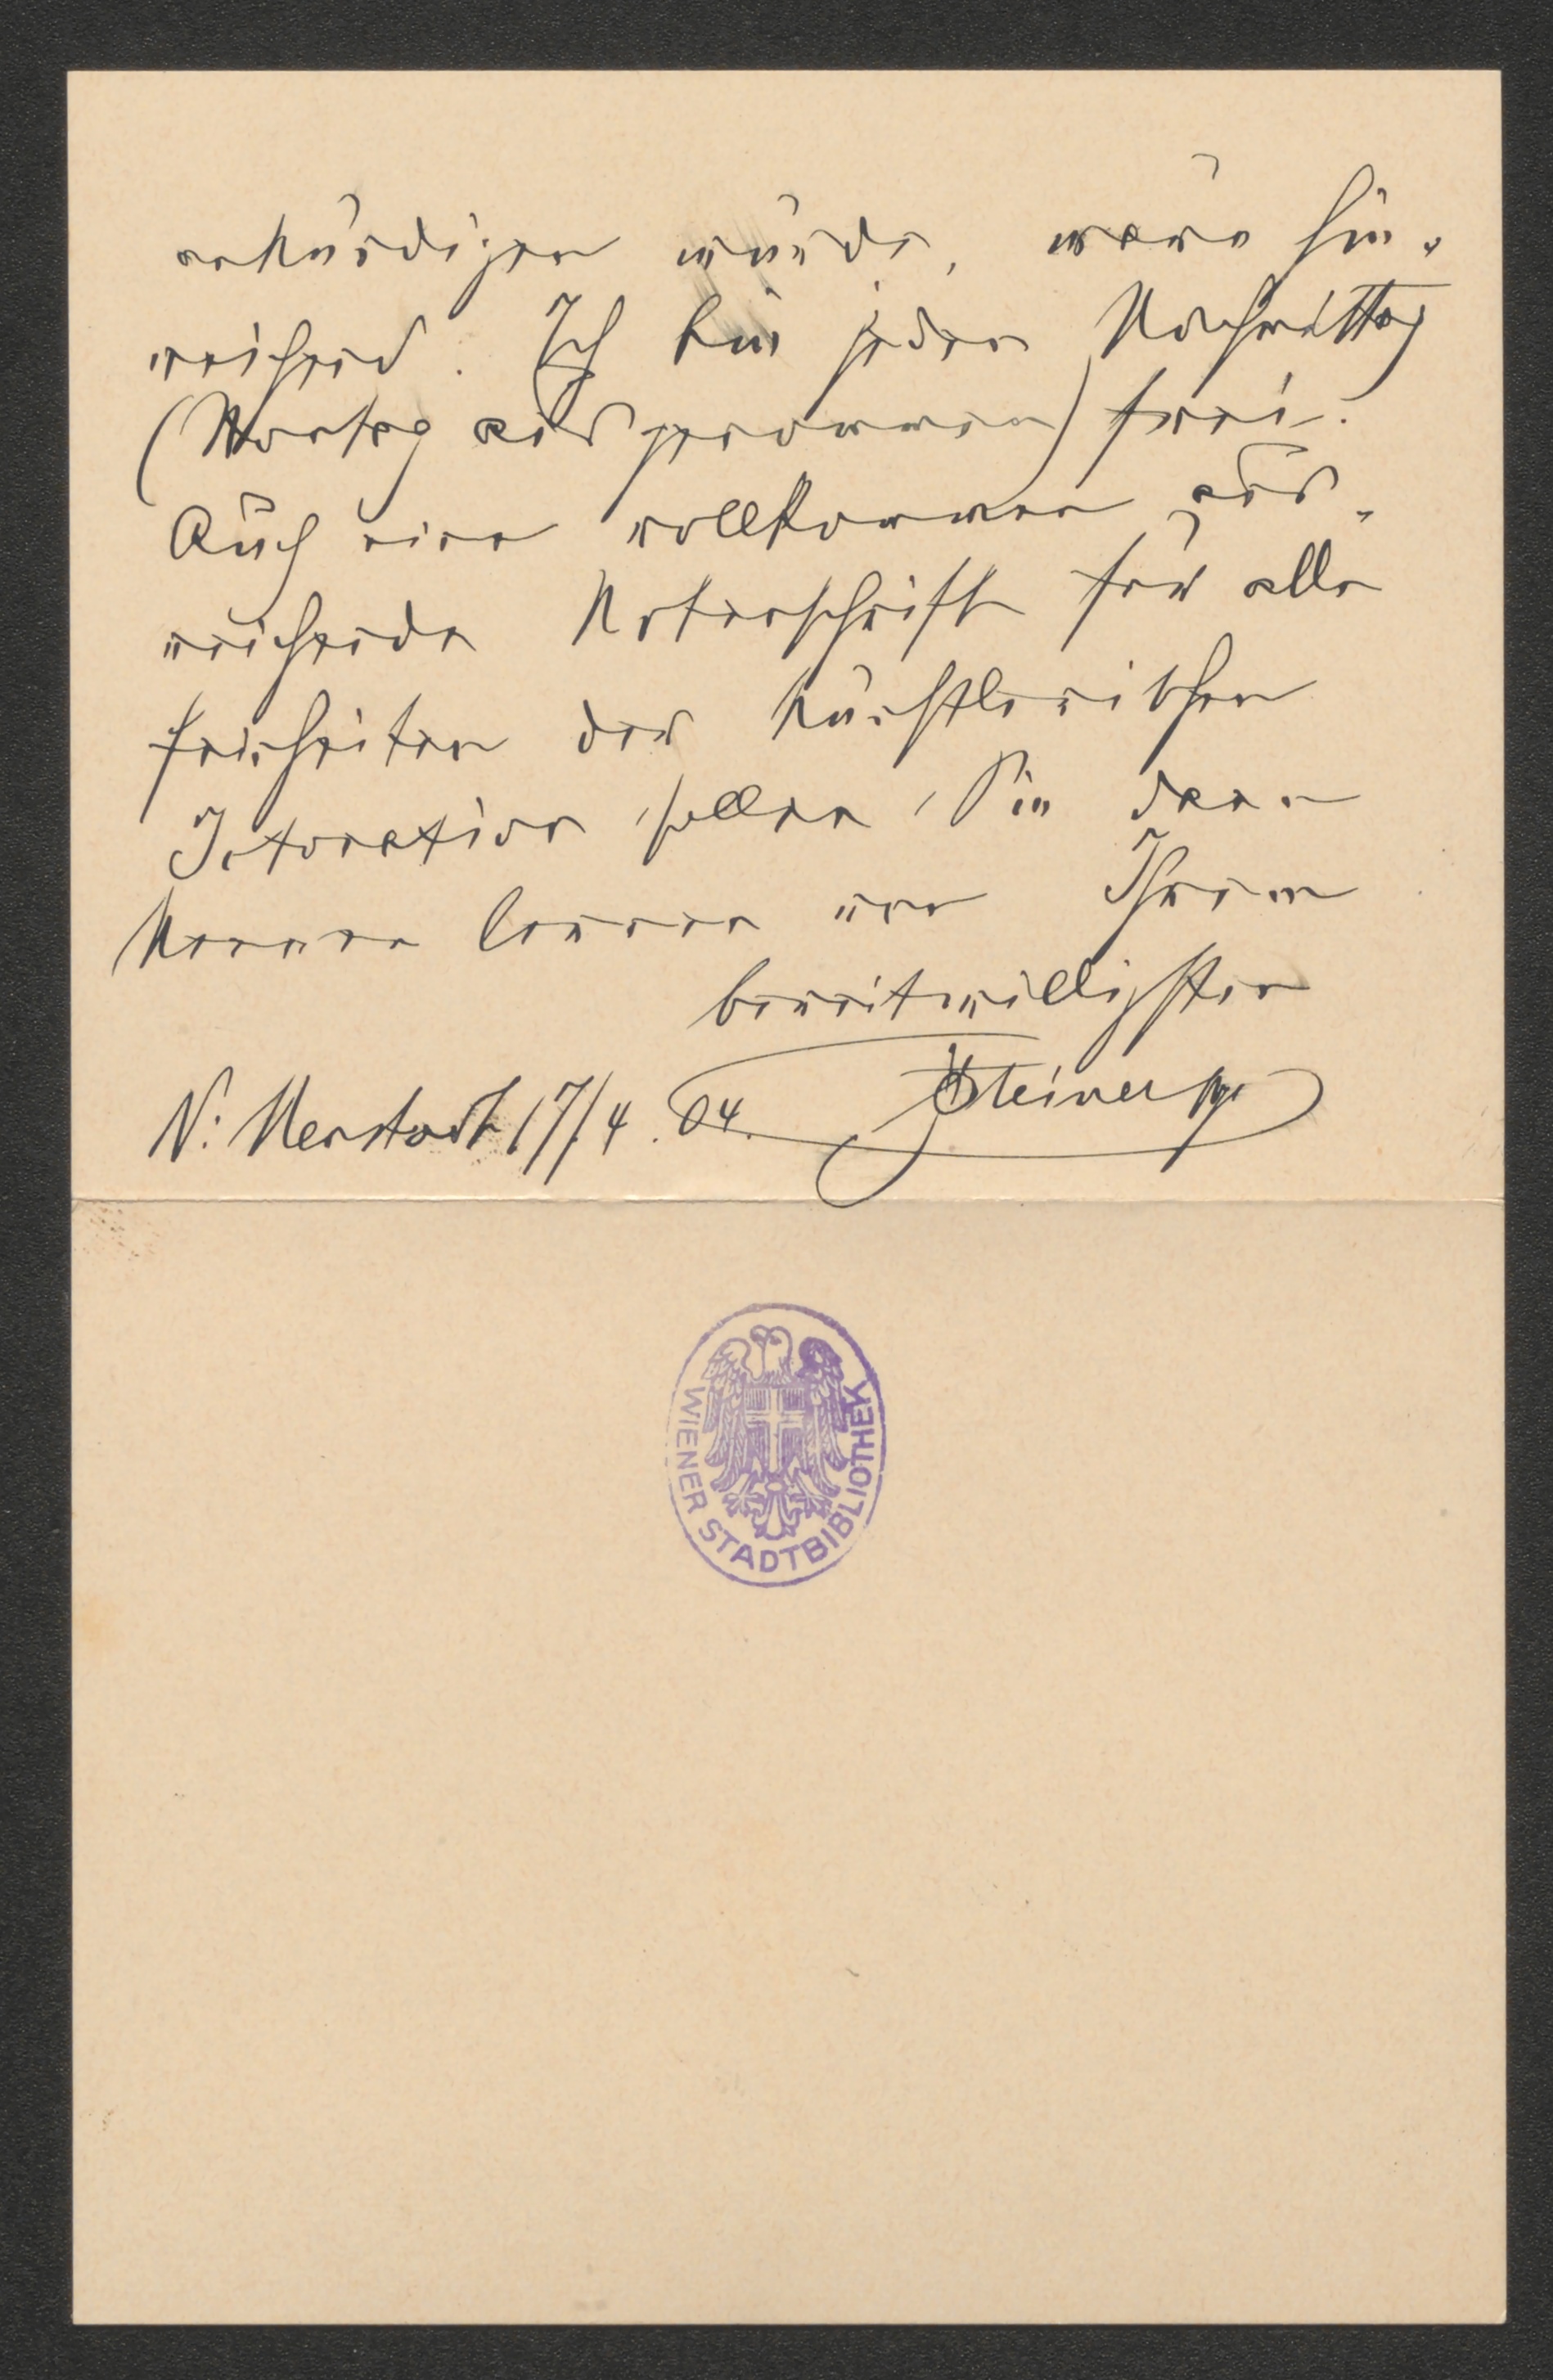 ankündigen würde, wäre hin-
reichend. Ich bin jeden Nachmittag
(Montag ausgenommen) frei.
Auch eine vollkommen aus-
reichende Notenschrift für alle
Feinheiten der künstlerischen
Intonation sollen Sie dann
kennen lernen von Ihrem
bereitwilligsten
N: Neustadt 17/4. 04. Steiner
WIENER STADTBIBLIOTHEK